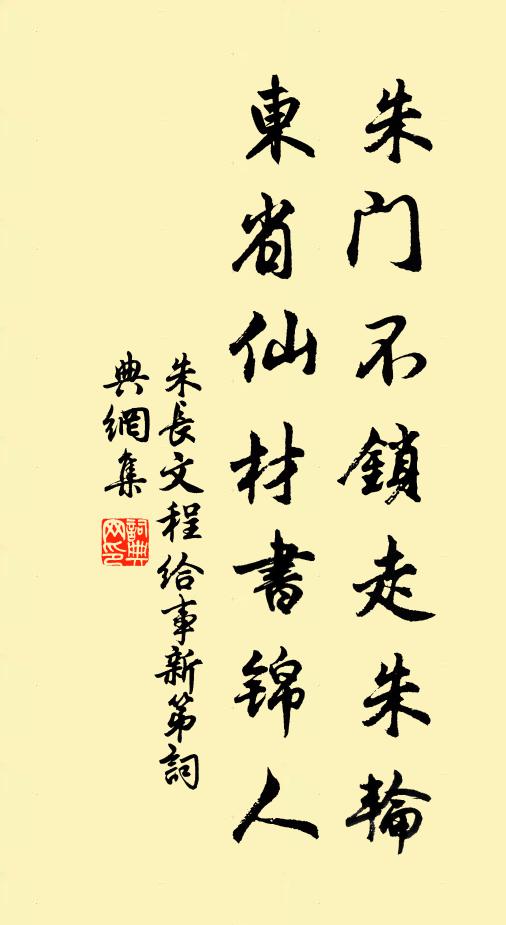 朱门不鎖走朱輪
東省仙材書錦人
朱長文程给事新第詞
典網集
詞典
网印